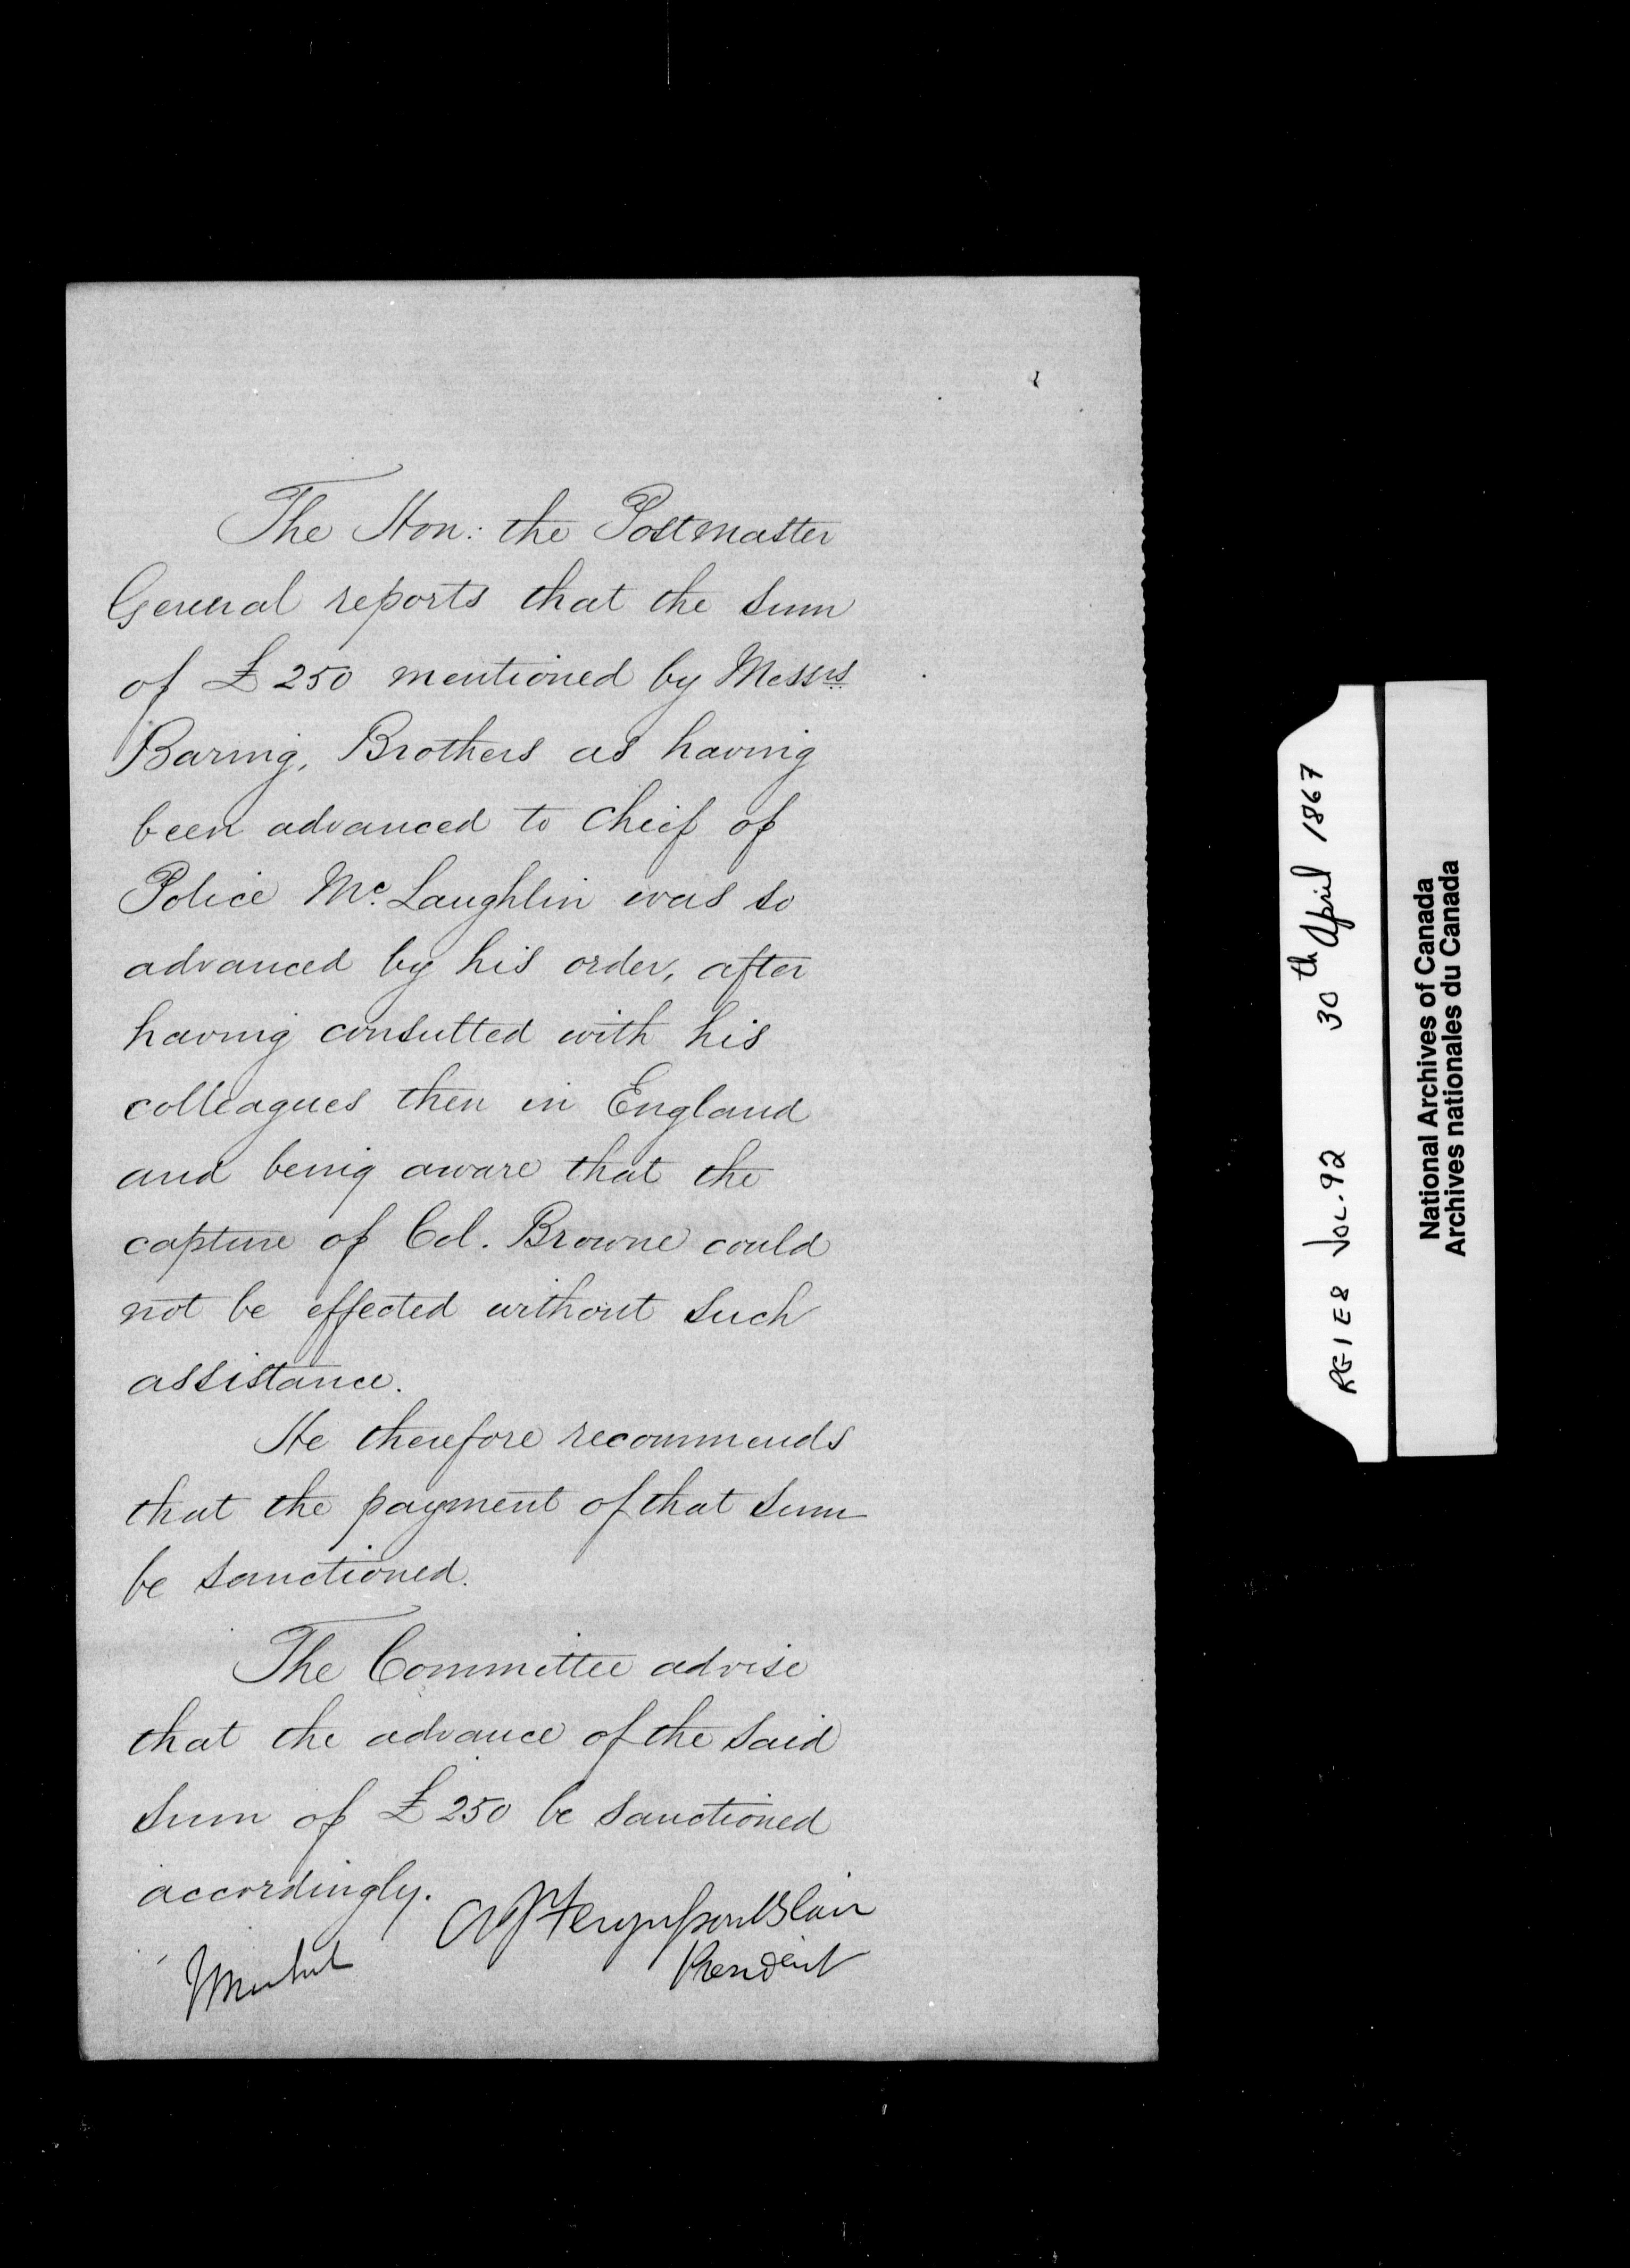 The Hon: the Postmaster
General reports that the sum
of £250 mentioned by Messrs
Baring, Brothers as having
been advanced to Chief of
Police Mc. Laughlin was so
advanced by his order, after
having consulted with his
colleagues then in England
and being aware that the
capture of Col. Browne could
not be effected without such
assistance.
He therefore recommends
that the payment of that sum
be sanctioned.
The Committee advise
that the advance of the said
sum of £250 be sanctioned
accordingly.
A J Fergusson Blair
President
RG1E8 VOL. 92 30th April 1867
National Archives of Canada
Archives nationales du Canada